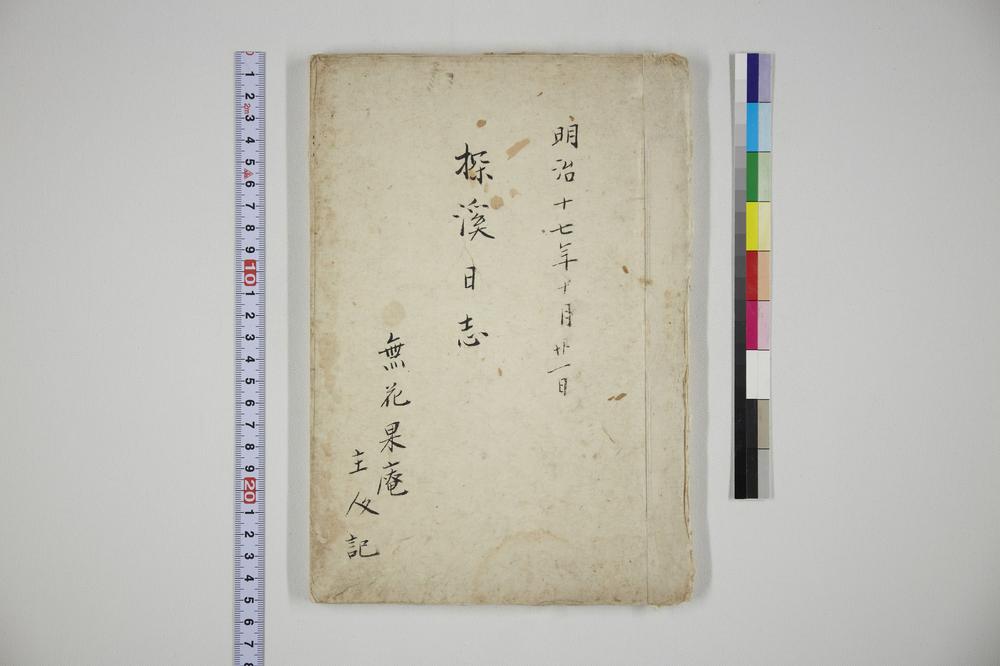 明治十七年十月廿一日
探溪日志
無花果庵
主人記
0 1 2 3 4 5 6 7 8 9 10 1 2 3 4 5 6 7 8 9 20 1 2 3 4 5 6 7 8